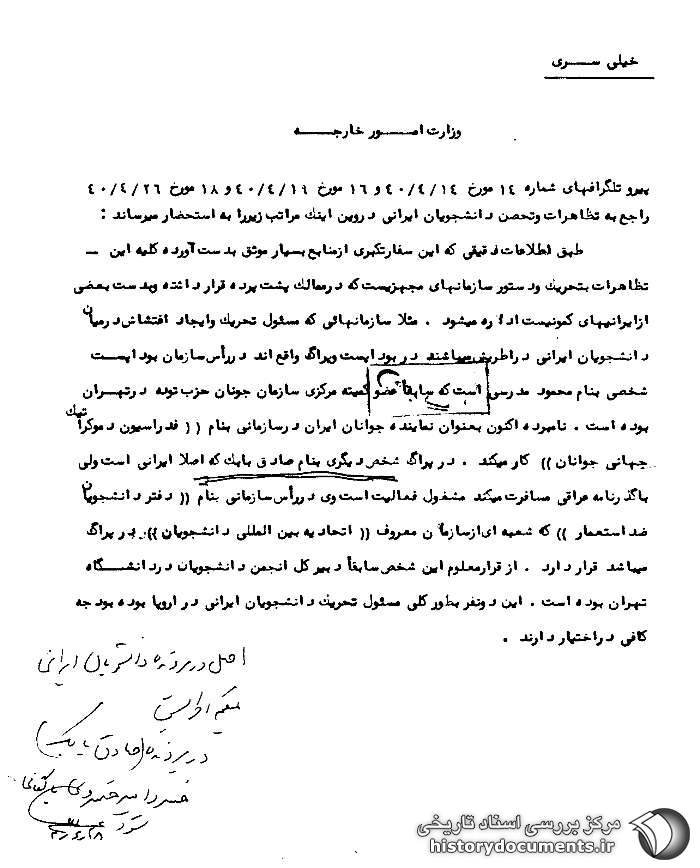 خیلی ســـری
وزارت امـــور خارجـــه
پیرو تلگرافهای شماره ۱۴ مورخ ۴۰/۴/۱۴ و ۱۶ مورخ ۴۰/۴/۱۹ و ۱۸ مورخ ۴۰/۴/۲۶
راجع به تظاهرات وتحصن دانشجویان ایرانی دروین اینک مراتب زیررا به استحضار میرساند :
طبق اطلاعات دقیقی که این سفارتکبری ازمنابع بسیار موثق بدست آورده کلیه این ــ
تظاهرات بتحریک ودستور سازمانهای مجهزیست که درممالک پشت پرده قرار داشته وبدست بعضی
ازایرانیهای کمونیست اداره میشود . مثلا سازمانهائی که مسئول تحریک وایجاد اغتشاش درمیان
دانشجویان ایرانی دراطریش میباشند در بوداپست وپراگ واقع اند دررأس سازمان بوداپست
شخصی بنام محمود مدرسی است که سابقاً عضو کمیته مرکزی سازمان جوانان حزب توده درتهران
بوده است . نامبرده اکنون بعنوان نماینده جوانان ایران درسازمانی بنام (( فدراسیون دموکراتیک
جهانی جوانان )) کار میکند . در پراگ شخص دیگری بنام صادق بابک که اصلا ایرانی است ولی
باگذرنامه عراقی مسافرت میکند مشغول فعالیت است وی دررأس سازمانی بنام (( دفتر دانشجویان
ضد استعمار )) که شعبه ای ازسازمان معروف (( اتحادیه بین المللی دانشجویان )) در پراگ
میباشد قرار دارد . از قرارمعلوم این شخص سابقاً دبیر کل انجمن دانشجویان در دانشگاه
تهران بوده است . این دونفر بطور کلی مسئول تحریک دانشجویان ایرانی در اروپا بوده بودجه
کافی دراختیار دارند .
اصل در پرونده دانشجویان ایرانی
در پرونده (صادق بابک)
شود
مرکز بررسی اسناد تاریخی
historydocuments.ir